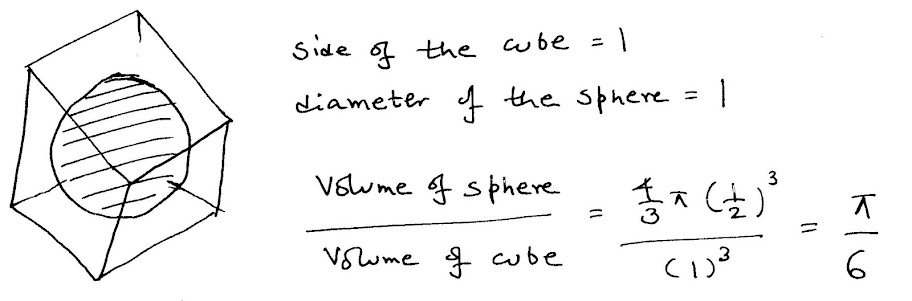 Side of the cube = 1
diameter of the sphere = 1
Volume of sphere / Volume of cube = 4/3 π (1/2)³ / (1)³ = π/6